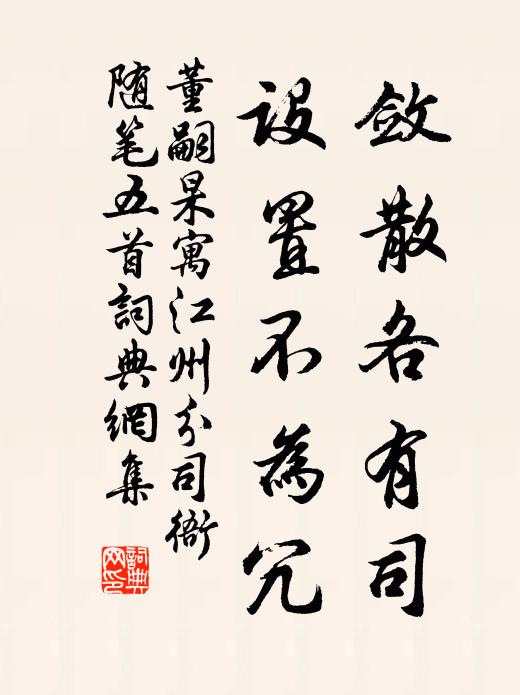 敛散各有司
设置不為冗
董嗣杲寓江州分司衙
随笔五首詞典網集
詞典網印